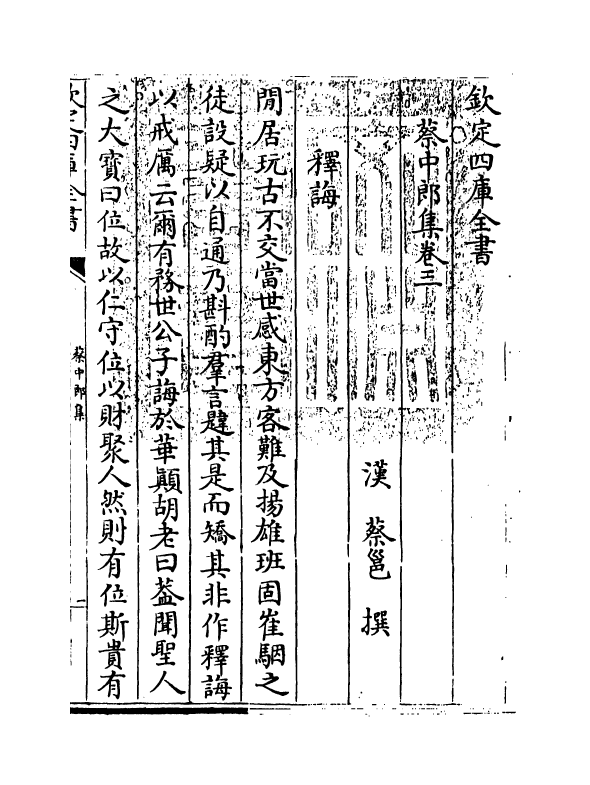 欽定四庫全書
蔡中郎集卷三
漢 蔡邕 撰
釋誨
閒居玩古不交當世感東方客難及揚雄班固崔駰之
徒設疑以自通乃斟酌羣言韙其是而矯其非作釋誨
以戒厲云爾有務世公子誨於華顛胡老曰葢聞聖人
之大寳曰位故以仁守位以財聚人然則有位斯貴有
欽定四庫全書
蔡中郎集